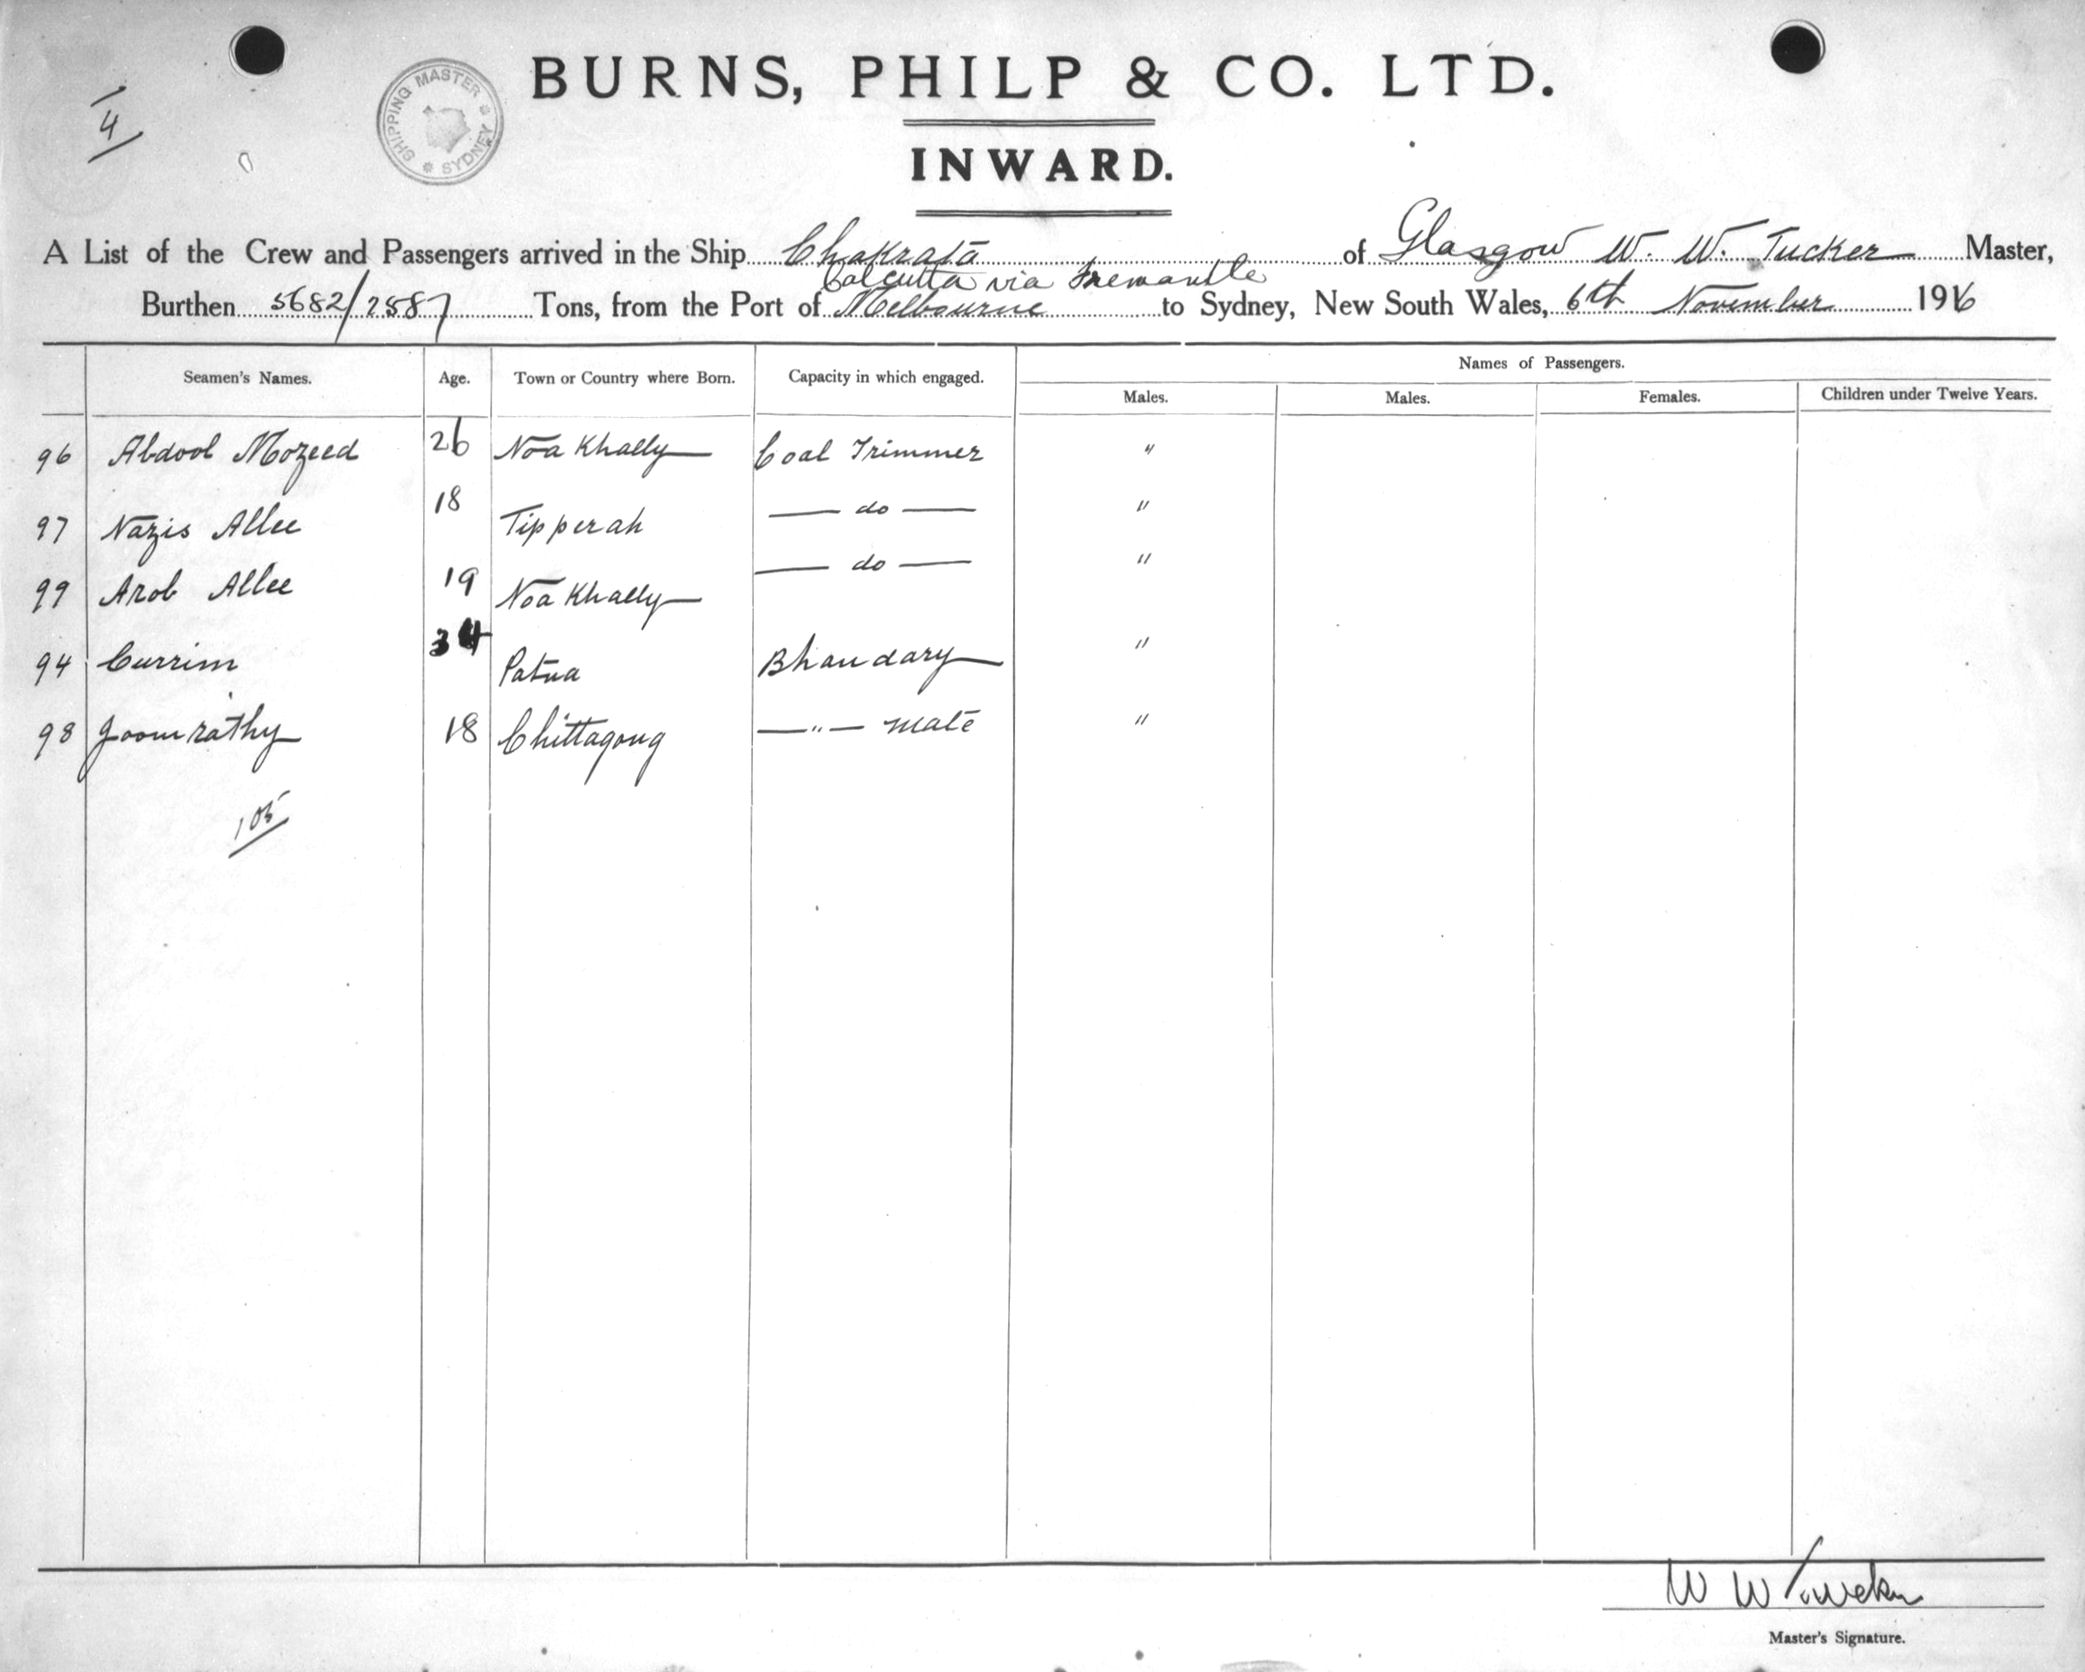 BURNS, PHILP & CO. LTD.
SHIPPING MASTER * SYDNEY *
4
INWARD.
A List of the Crew and Passengers arrived in the Ship Chakrata of Glasgow W. W. Tucker Master,
Calcutta via Fremantle
Burthen 5682/2587 Tons, from the Port of Melbourne to Sydney, New South Wales, 6th November 1916
Names of Passengers.
Seamen's Names. Age. Town or Country where Born. Capacity in which engaged. Males. Males. Females. Children under Twelve Years.
96 Abdool Mozeed 26 Noa Khally Coal Trimmer "
97 Nazis Allee 18 Tipperah — do — "
99 Arob Allee 19 Noa Khally — do — "
94 Currim 34 Patna Bhandary "
98 Joomrathy 18 Chittagong — " — mate "
105
W W Tucker
Master's Signature.